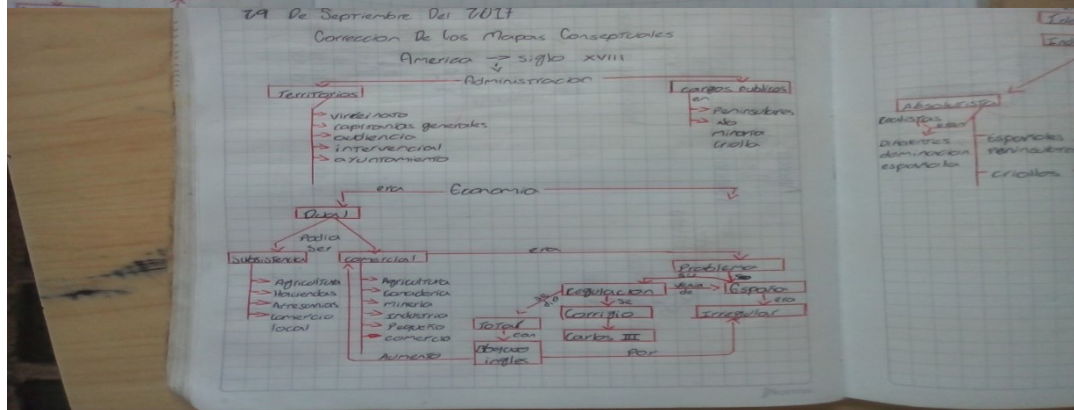 29 De Septiembre Del 2017
Correccion De los Mapas Conseptuales
America → siglo XVIII
Administracion
Territorios
virreinato
capitanias generales
audiencia
intervencial
ayuntamiento
cargos publicos
en
Peninsulares
No
minoria
criolla
era
Economia
Dual
Podia
ser
Subsistencia
Agricultura
Haciendas
Artesanias
comercio
local
comercial
Agricultura
Ganaderia
mineria
Industria
Pequeño
comercio
era
Problema
su
Regulacion
venia
de
España
se
era
Corrigio
Irregular
Carlos III
Total
con
ingles
Aumento
Por
Absolutista
Realistas
eran
dominacion
española
Españoles
Peninsulares
criollos